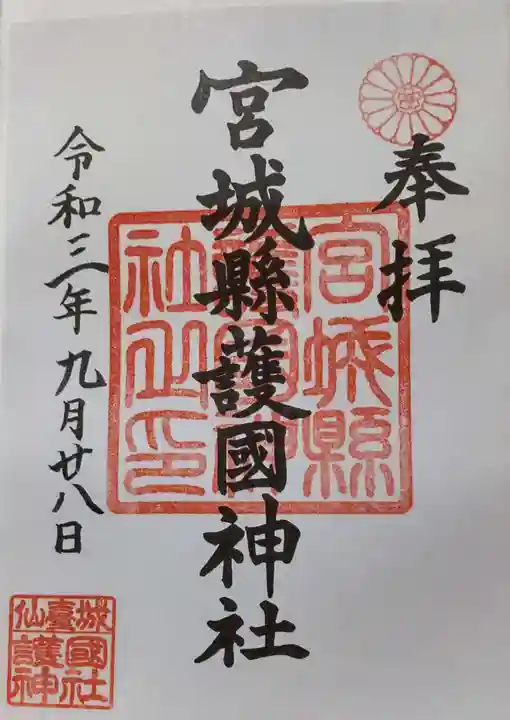 奉拝
宮城縣護國神社
令和三年九月廿八日
宮城縣護國神社之印
仙臺城護國神社